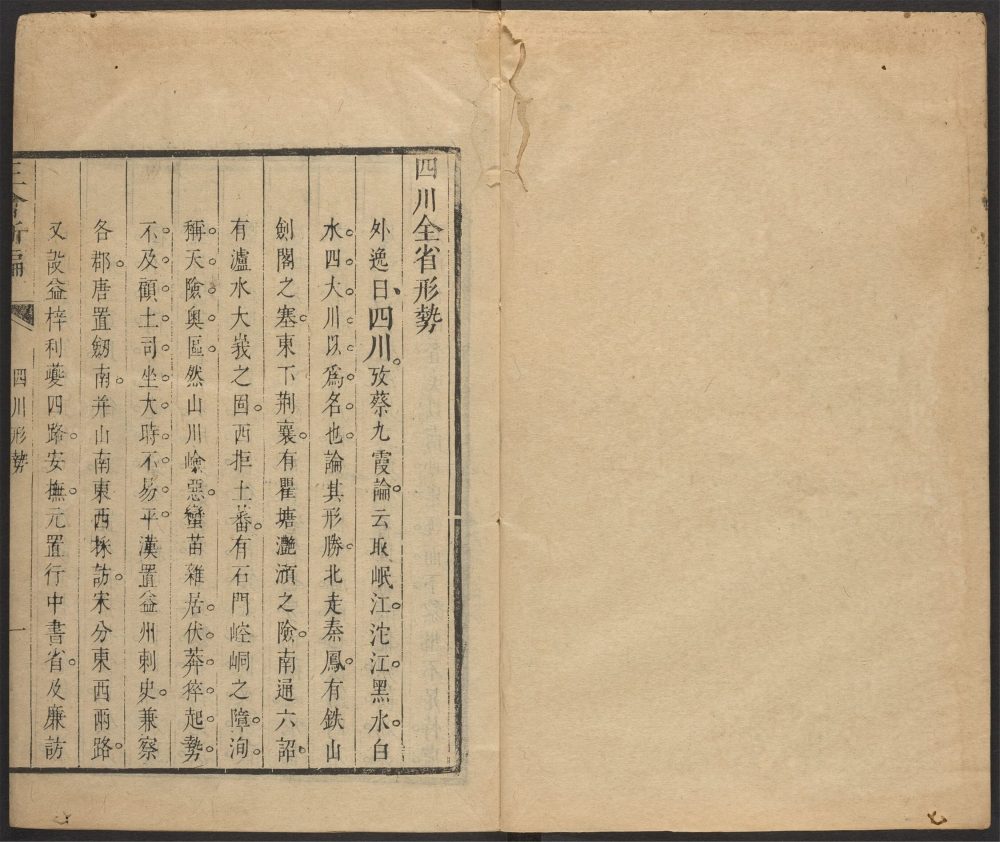 四川全省形勢
外逸曰四川。攷蔡九霞論。云取岷江。沱江。黑水。白
水。四大川以爲名也。論其形勝。北走秦鳳。有鉄山
劍閣之塞。東下荆襄。有瞿塘灧澦之險。南通六詔。
有瀘水大峩之固。西拒土蕃。有石門崆峒之障。洵
稱天險奥區。然山川嶮惡。蠻苗雜居。伏莽猝起。勢
不及顧。土司坐大。時不易平。漢置益州刺史。兼察
各郡。唐置劒南。并山南東西採訪。宋分東西兩路。
又設益梓利夔四路。安撫。元置行中書省。及廉訪
四川形勢
一